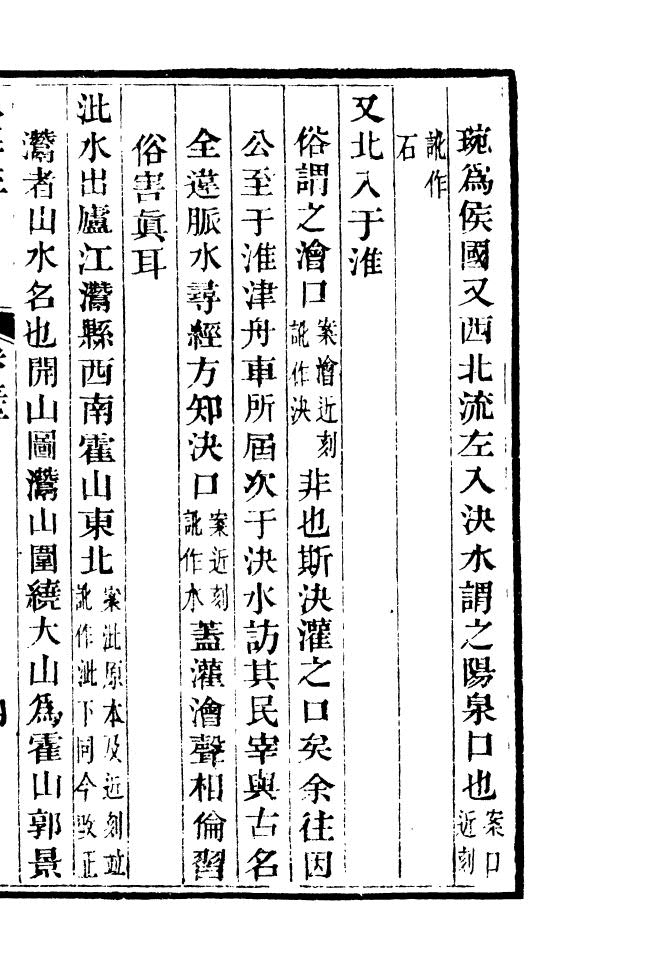 琬爲侯國又西北流左入決水謂之陽泉口也案口近刻
訛作石
又北入于淮
俗謂之澮口案澮近刻訛作決非也斯決灌之口矣余往因
公至于淮津舟車所屆次于決水訪其民宰與古名
全違脈水尋經方知決口案近刻訛作水蓋灌澮聲相倫習
俗害眞耳
沘水出廬江灊縣西南霍山東北案沘原本及近刻竝訛作泚下同今改正
灊者山水名也開山圖灊山圍繞大山爲霍山郭景